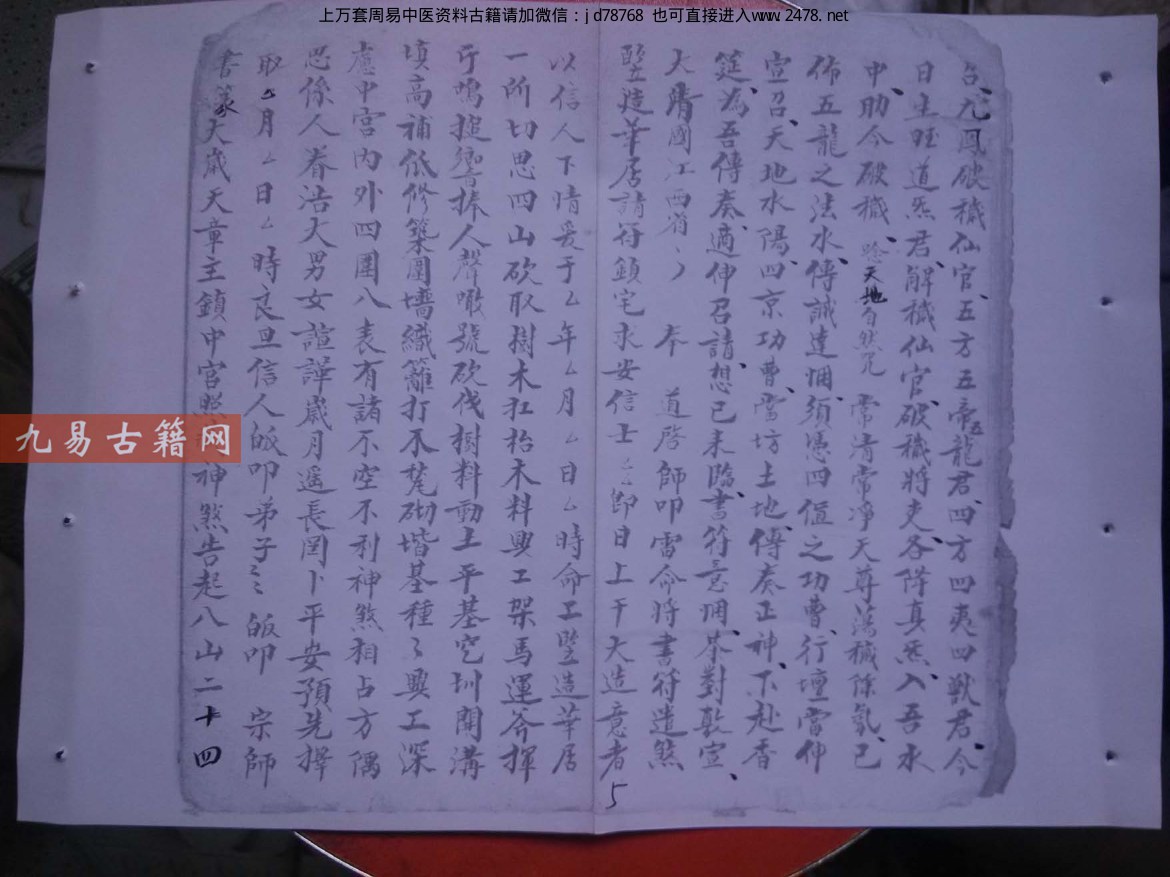 上万套周易中医资料古籍请加微信：jd78768 也可直接进入www.2478.net
台九鳳破穢仙官五方五帝龍君四方四夷四獸君今
日生旺道炁君解穢仙官破穢將吏各降真炁入吾水
中助今破穢 唸天地自然咒 常清常凈天尊蕩穢除氛已
佈五龍之法水傳誠達悃須憑四值之功曹行壇當伸
宣召天地水陽四京功曹當坊土地傳奏正神下赴香
筵為吾傳奏適伸召請想已來臨書符意悃恭對敷宣
大清國江西省 奉 道啓師叩雷命將書符遣煞
竪造華居請符鎮宅求安信士厶厶即日上干大造意者
5
以信人下情爰于厶年厶月厶日厶時命工竪造華居
一所切思四山砍取樹木扛抬木料興工架馬運斧揮
斤鳴搥響振人聲噉號砍伐樹料動土平基穵圳開溝
填高補低修築圍墻織籬打木荐砌堦基種種興工深
慮中宮內外四圍八表有諸不空不利神煞相占方隅
思係人眷浩大男女諠譁歲月遥長罔卜平安預先擇
取厶月厶日厶時良旦信人皈叩弟子 皈叩 宗師
書篆大歲天章主鎮中宮 神煞告起八山二十四
九易古籍网